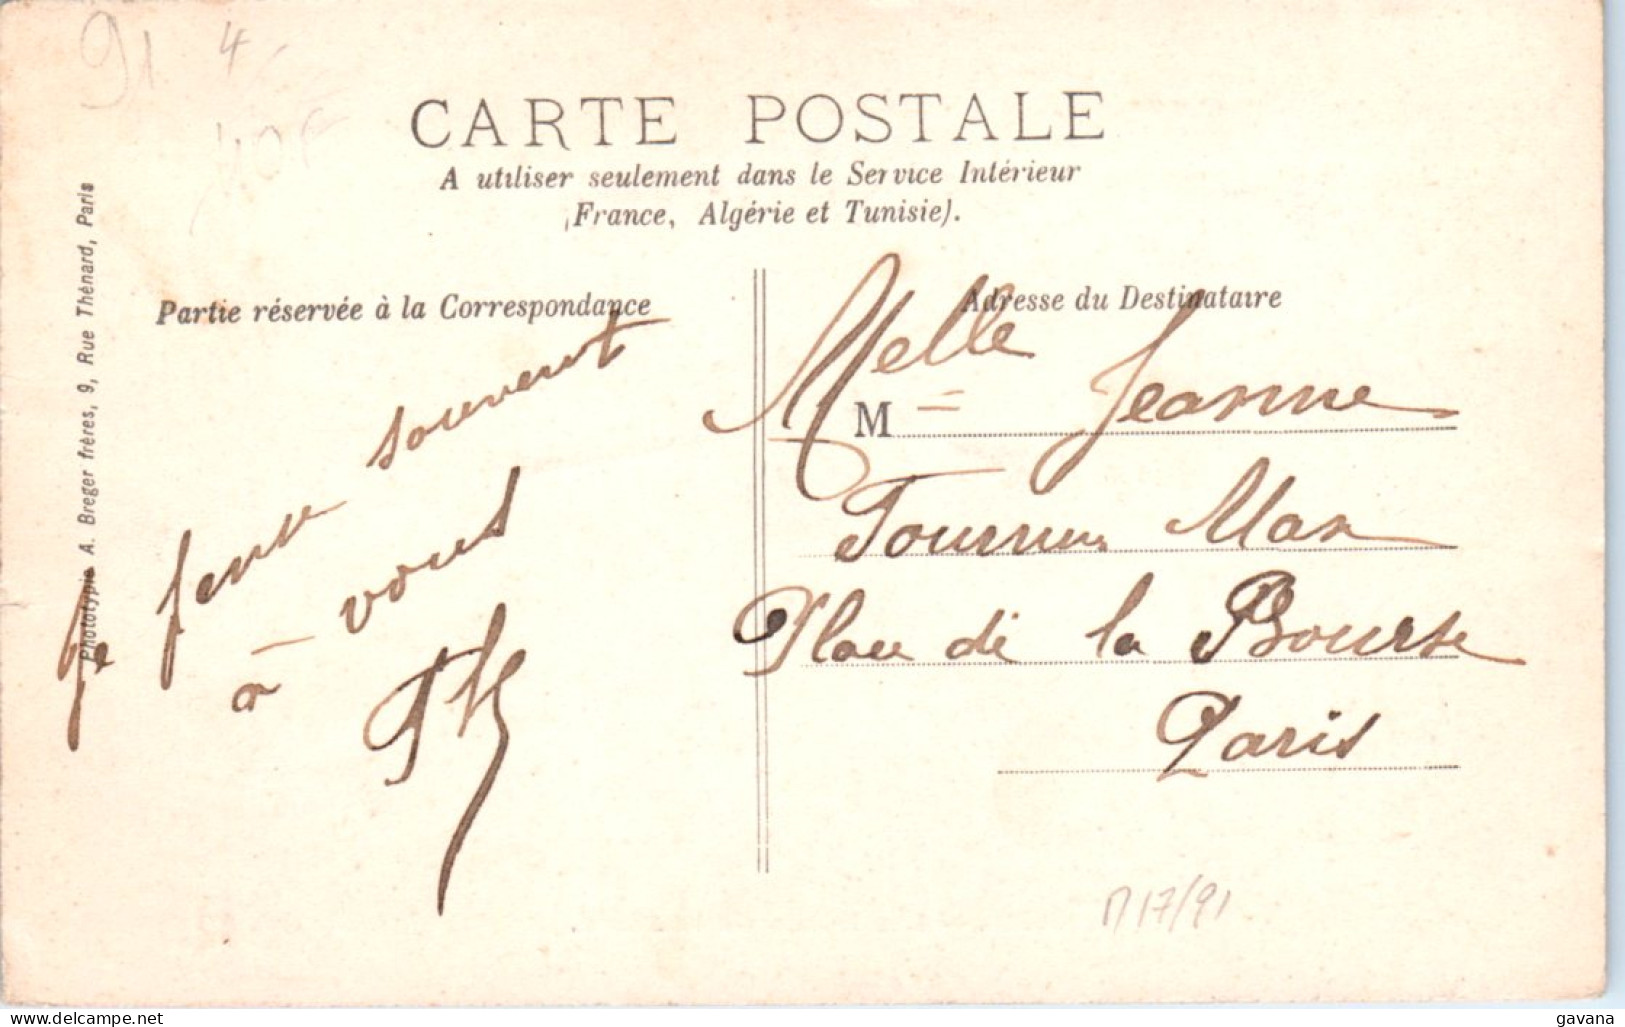 91 4
40F
CARTE POSTALE
A utiliser seulement dans le Service Intérieur
(France, Algérie et Tunisie).
Phototypie A. Breger frères, 9, Rue Thénard, Paris
Partie réservée à la Correspondance
Je pense souvent
à vous
Adresse du Destinataire
Melle
M Jeanne
Place de la Bourse
Paris
M17/91
www.delcampe.net
gavana